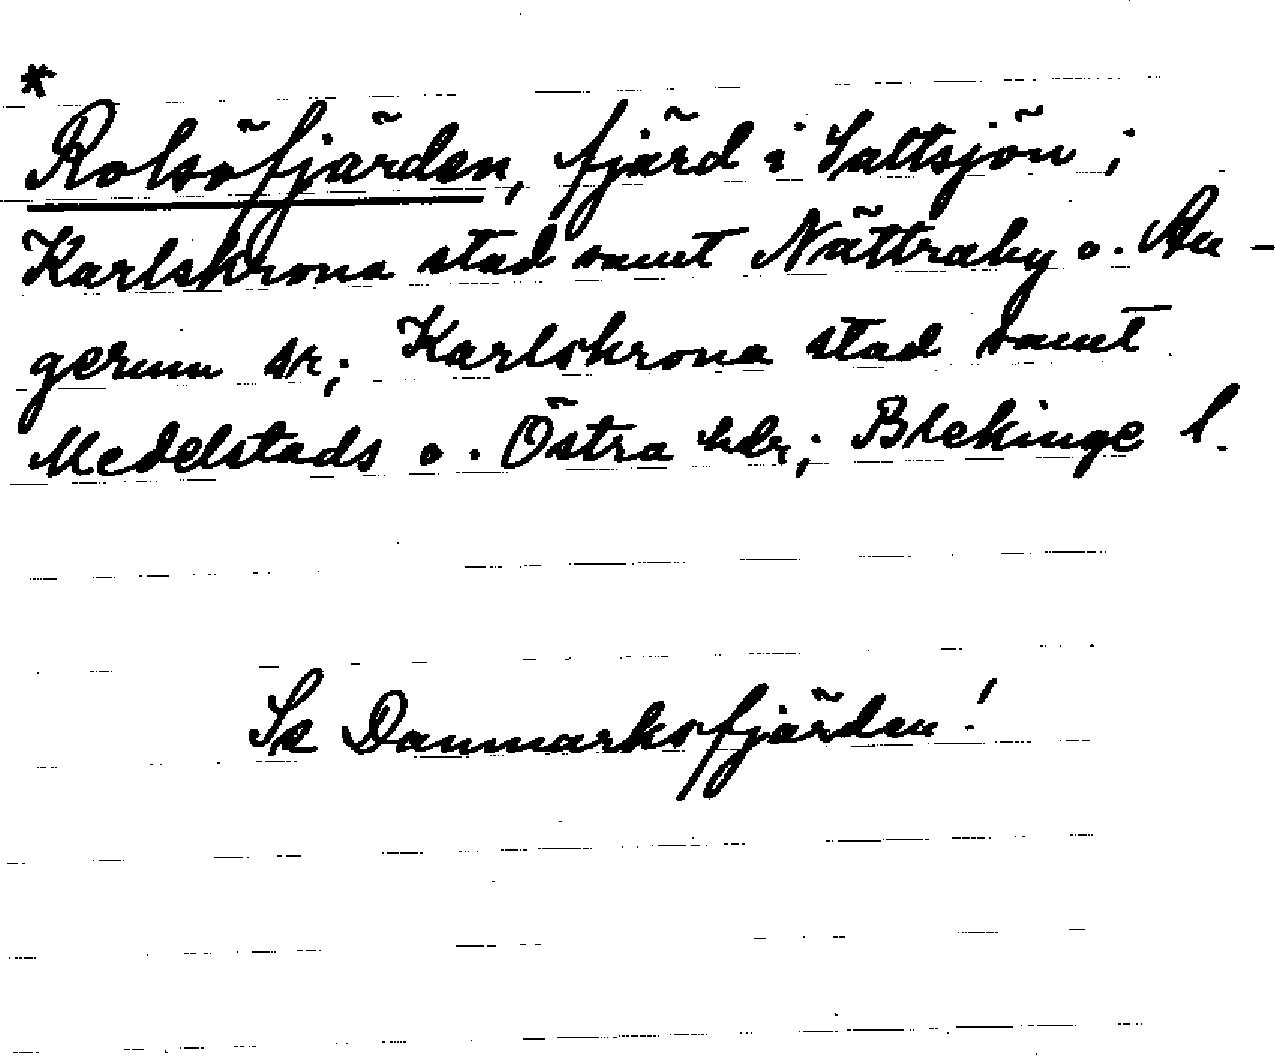 *
Rolsöfjärden, fjärd i Saltsjön i
Karlskrona stad samt Nättraby o. Au-
gerum skr; Karlskrona stad samt
Medelstads o. Östra hdr; Blekinge l.
Se Danmarksfjärden!